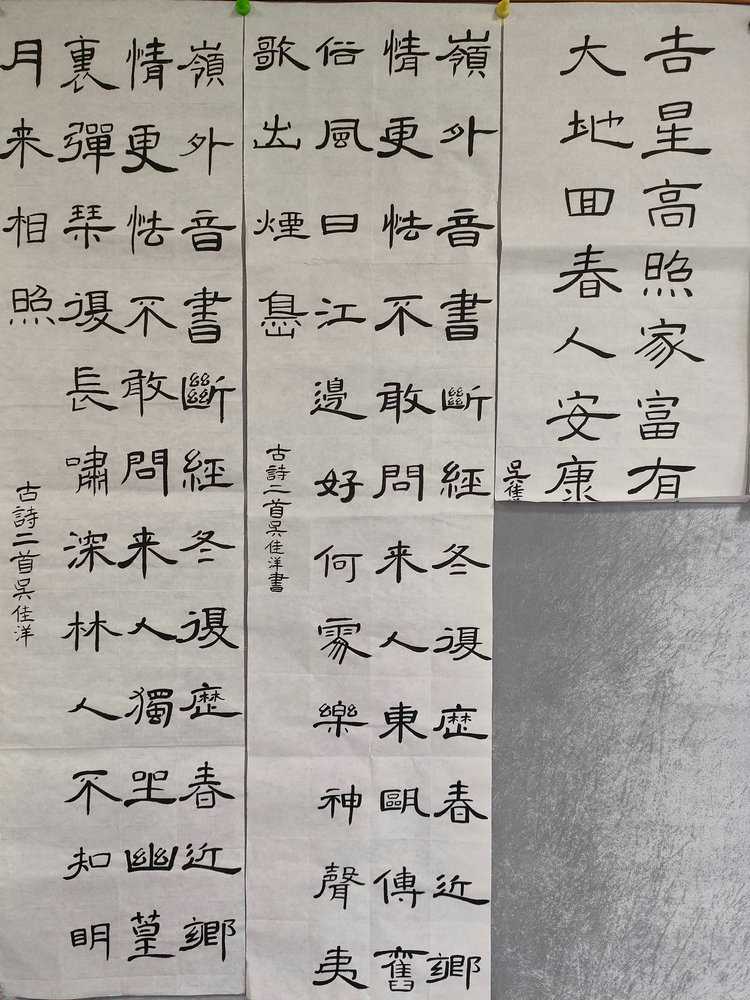 吉星高照家富有
大地回春人安康
吳佳
嶺外音書斷經冬復歷春近鄉
情更怯不敢問来人東甌傳舊
俗風日江邊好何處樂神聲夷
歌出煙島
古詩二首吳佳洋書
嶺外音書斷經冬復歷春近鄉
情更怯不敢問来人獨坐幽篁
裏彈琴復長嘯深林人不知明
月来相照
古詩二首吳佳洋